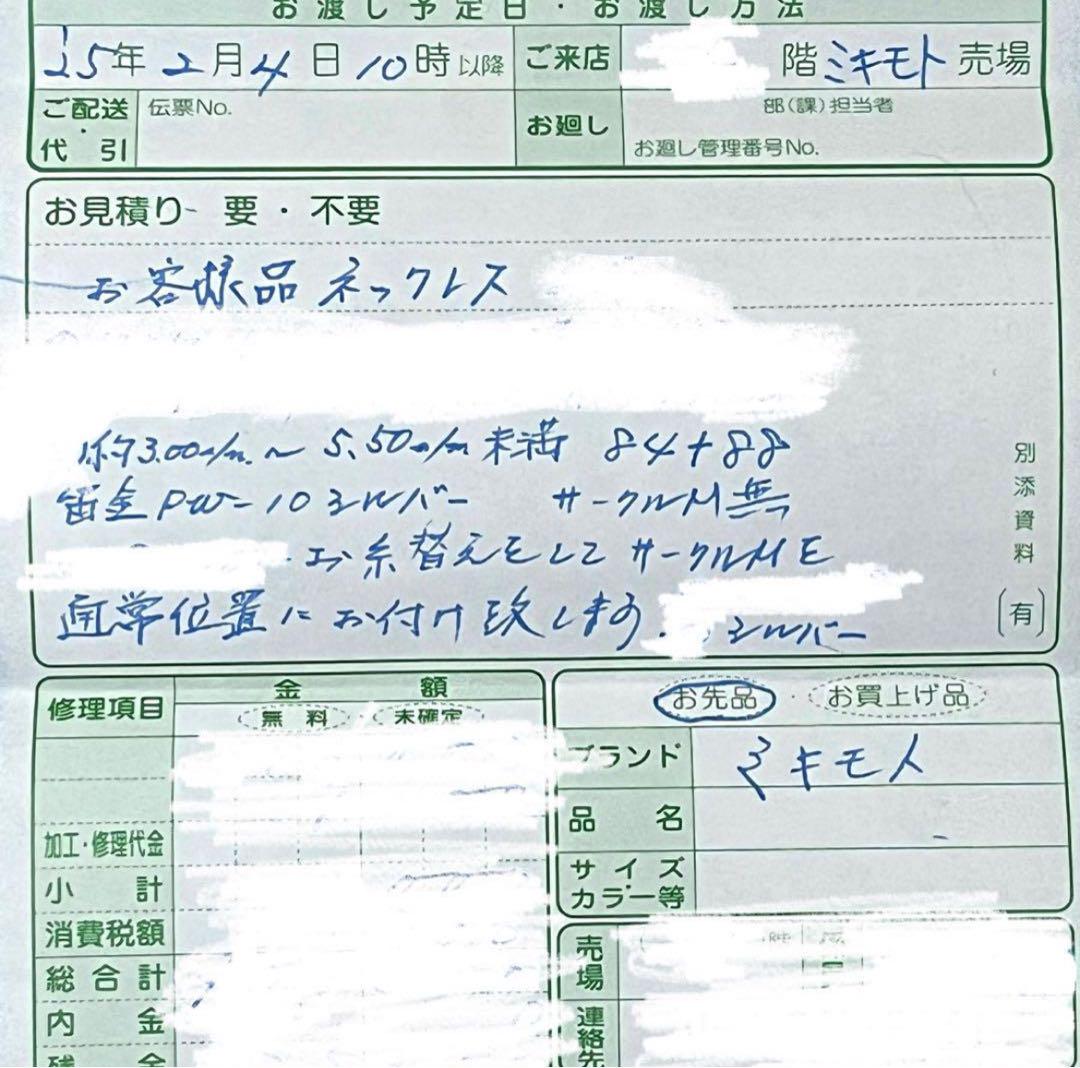 お渡し予定日・お渡し方法
'25年 2月4日 10時以降 ご来店 階 ミキモト 売場
ご配送・代引 伝票No. お廻し 部(課)担当者
お廻し管理番号No.
お見積り 要・不要
お客様品 ネックレス
約3.00m/m～5.50m/m未満 84+88
留金PW-10シルバー サークルM無
お糸替えをしてサークルMを
通常位置にお付け致します. シルバー
別添資料
(有)
修理項目 金額
無料 未確定
加工・修理代金
小計
消費税額
総合計
内金
残金
お先品・お買上げ品
ブランド ミキモト
品名
サイズ
カラー等
売場
連絡先